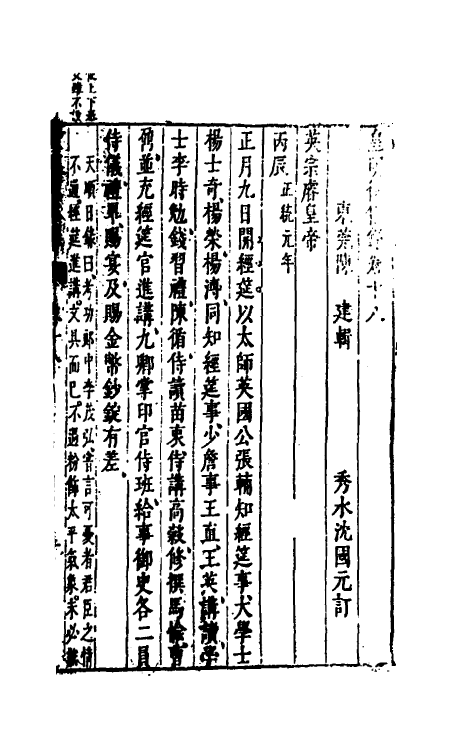 皇明從信錄卷十八
東莞陳建輯
秀水沈國元訂
英宗睿皇帝
丙辰正統元年
正月九日開經筵以太師英國公張輔知經筵事大學士
楊士奇楊榮楊溥同知經筵事少詹事王直王英講讀學
士李時勉錢習禮陳循侍讀苗衷侍講高穀修撰馬愉曹
鼐並充經筵官進講九卿掌印官侍班給事御史各二員
侍儀禮畢賜宴及賜金幣鈔錠有差
天順日錄曰考功郎中李茂弘嘗言可憂者君臣之情
不通經筵進講文具而已不過粉飾太平氣象未必